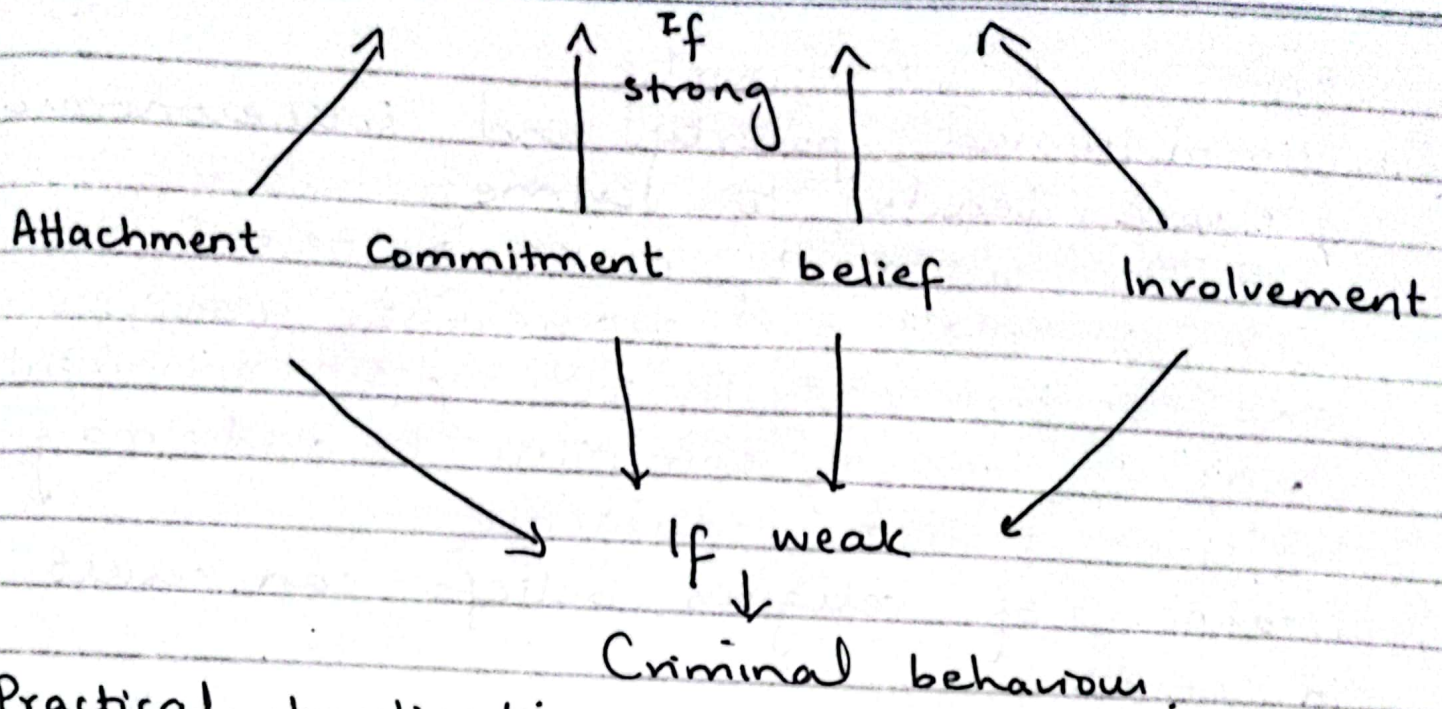 If
strong
Attachment Commitment belief Involvement
If weak
Criminal behaviour
Practical